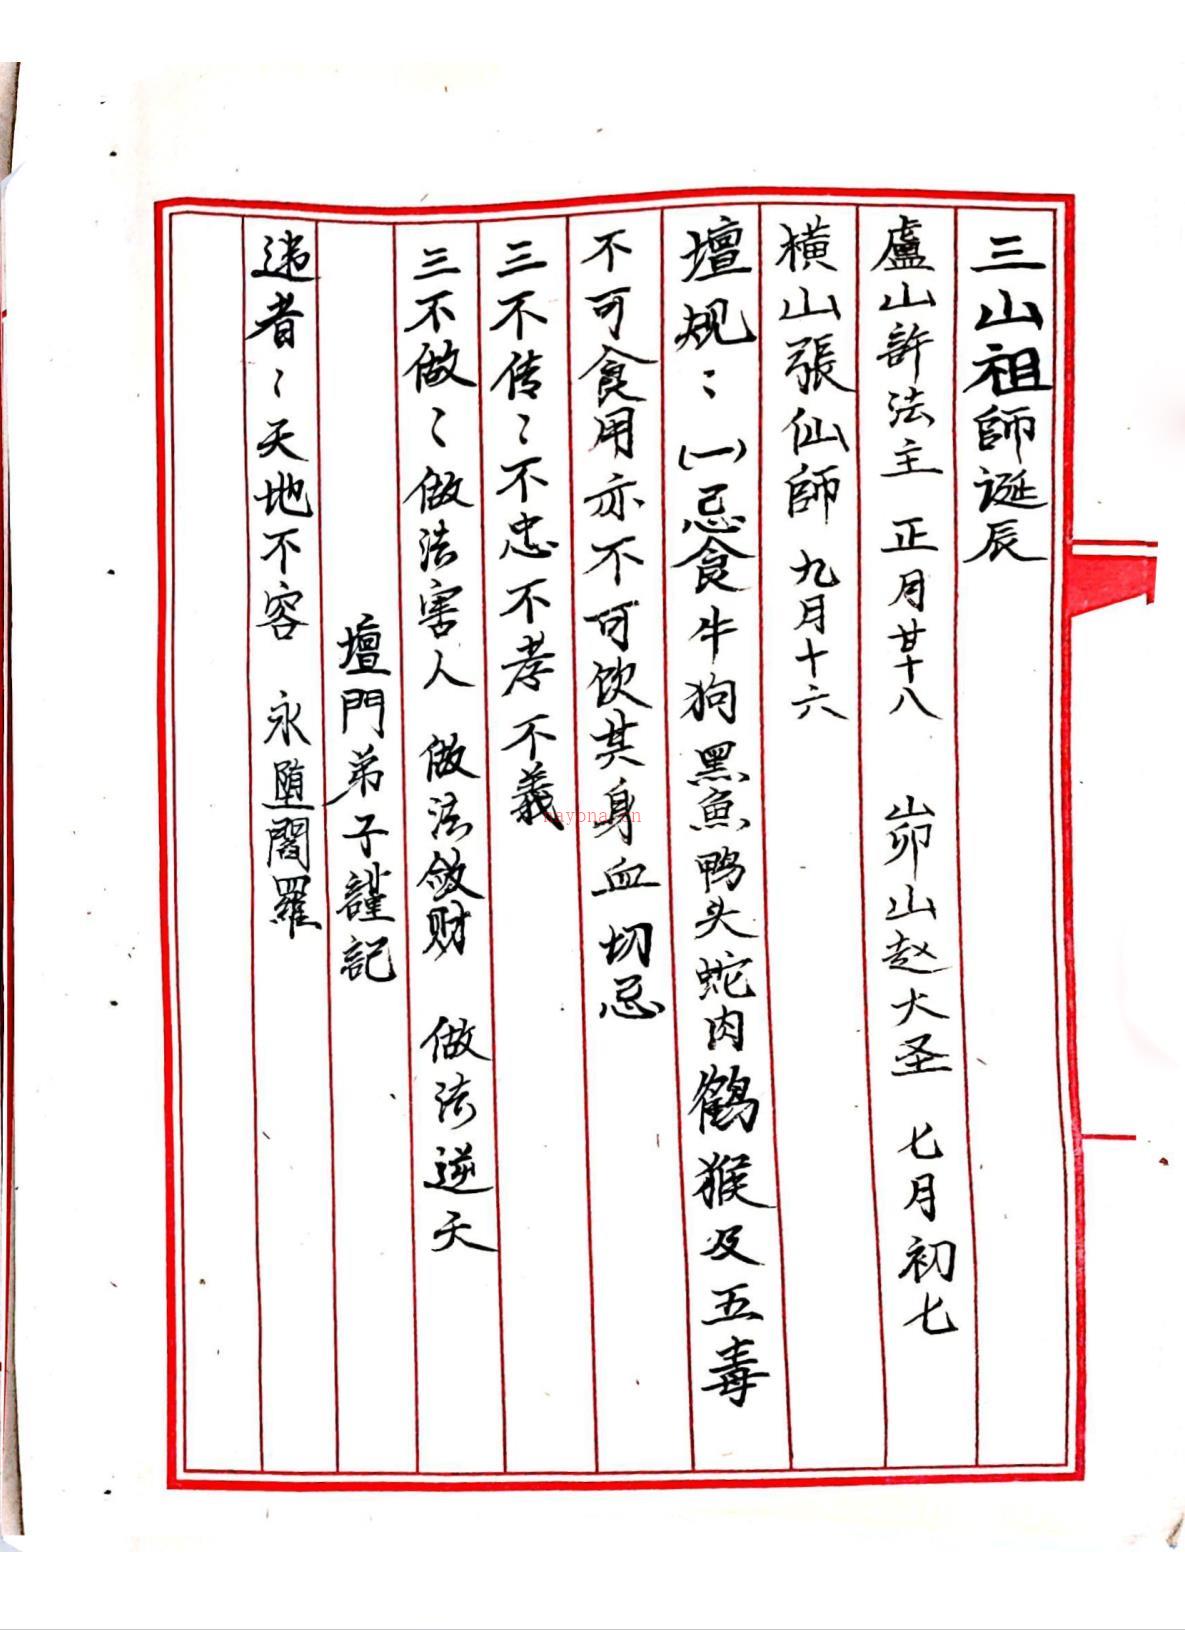 三山祖師诞辰
盧山許法主 正月廿十八 峁山赵大圣 七月初七
橫山張仙師 九月十六
壇规：(一)忌食牛狗黑魚鸭头蛇肉鶴猴及五毒
不可食用亦不可饮其身血切忌
三不传：不忠不孝不義
三不做：做法害人 做法敛财 做法逆天
壇門弟子謹記
违者：天地不容 永堕閻羅